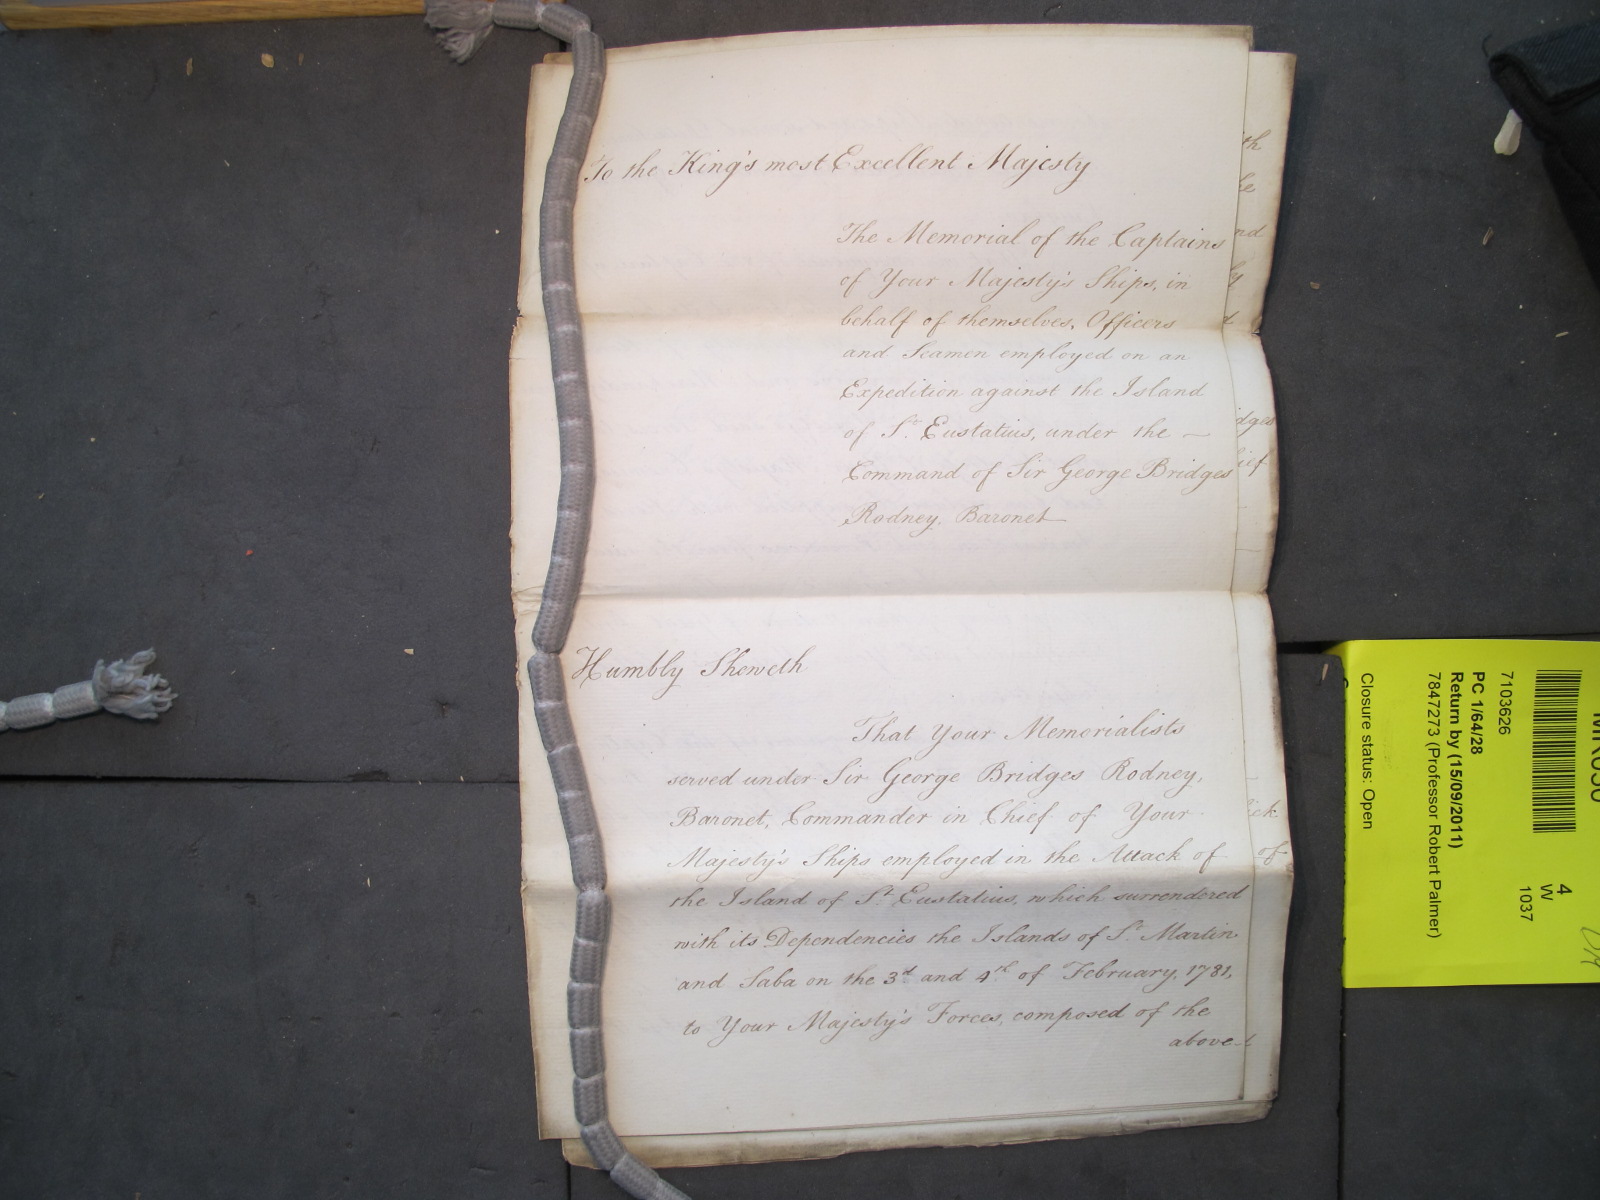 To the King's most Excellent Majesty
The Memorial of the Captains
of Your Majesty's Ships, in
behalf of themselves, Officers
and Seamen employed on an
Expedition against the Island
of St. Eustatius, under the —
Command of Sir George Bridges
Rodney, Baronet
Humbly Sheweth
That Your Memorialists
served under Sir George Bridges Rodney,
Baronet, Commander in Chief of Your
Majesty's Ships employed in the Attack of
the Island of St. Eustatius, which surrendered
with its Dependencies the Islands of St. Martin
and Saba on the 3d and 4th of February, 1781,
to Your Majesty's Forces, composed of the
above
th
be
nd
by
dges
ief
ick
of
4
W
1037
7103626
PC 1/64/28
Return by (15/09/2011)
7847273 (Professor Robert Palmer)
Closure status: Open